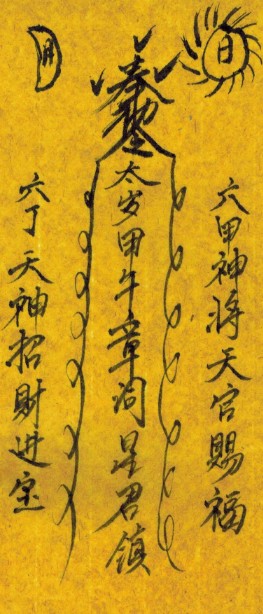 日
六甲神将天官賜福
奉勅
太岁甲午章詞星君鎮
月
六丁天神招財進宝